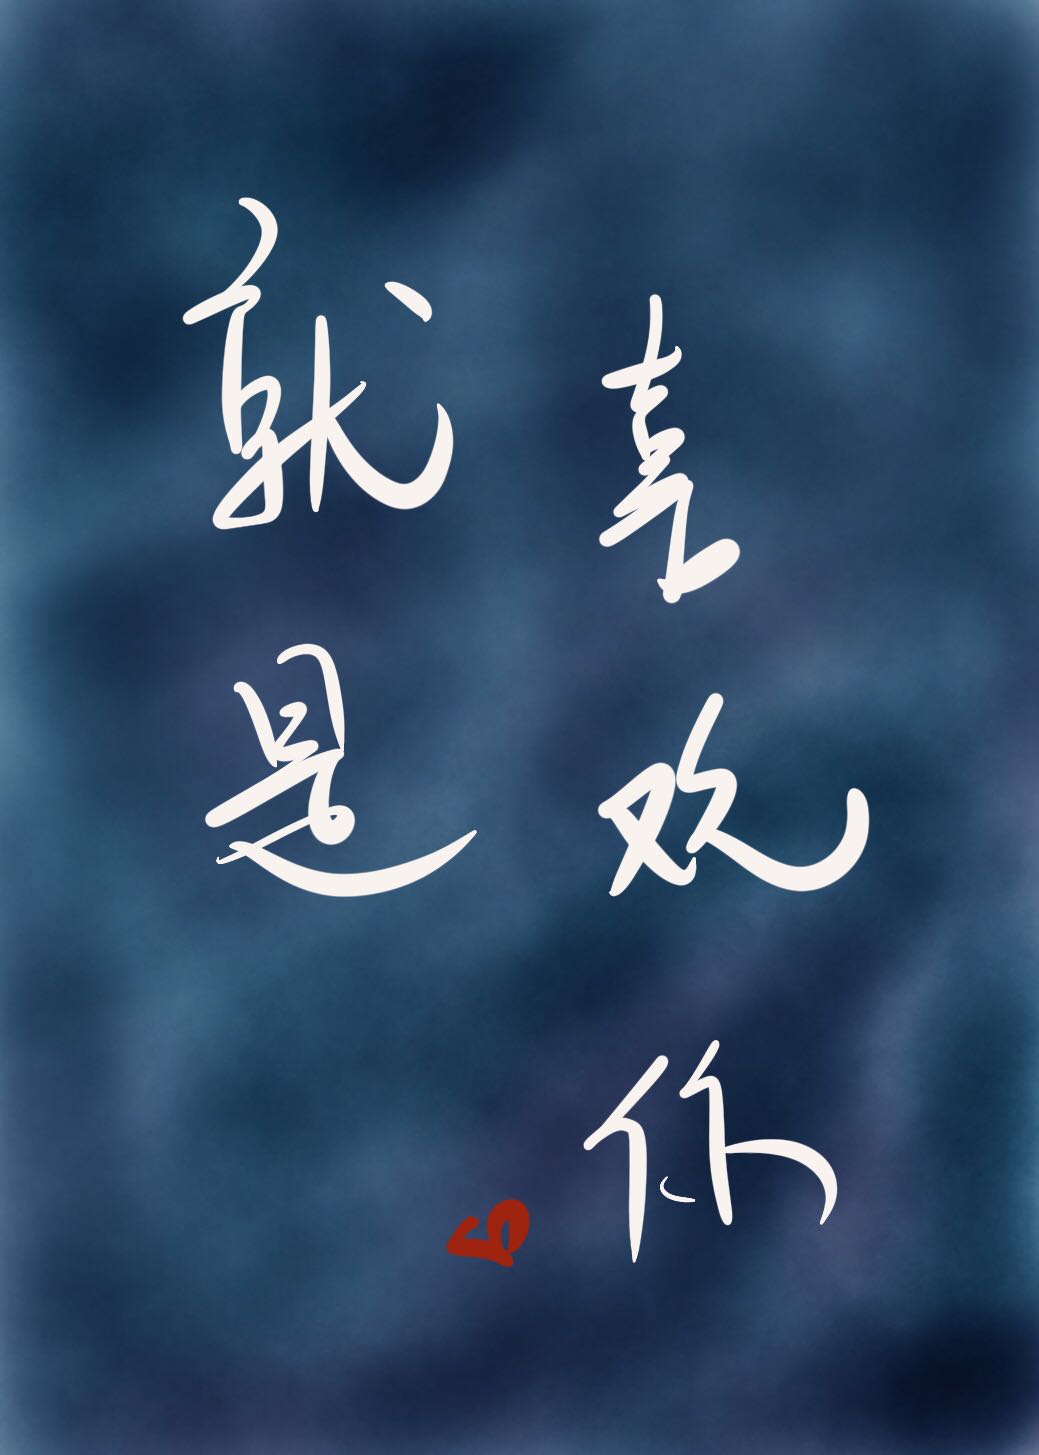 就是
喜欢你